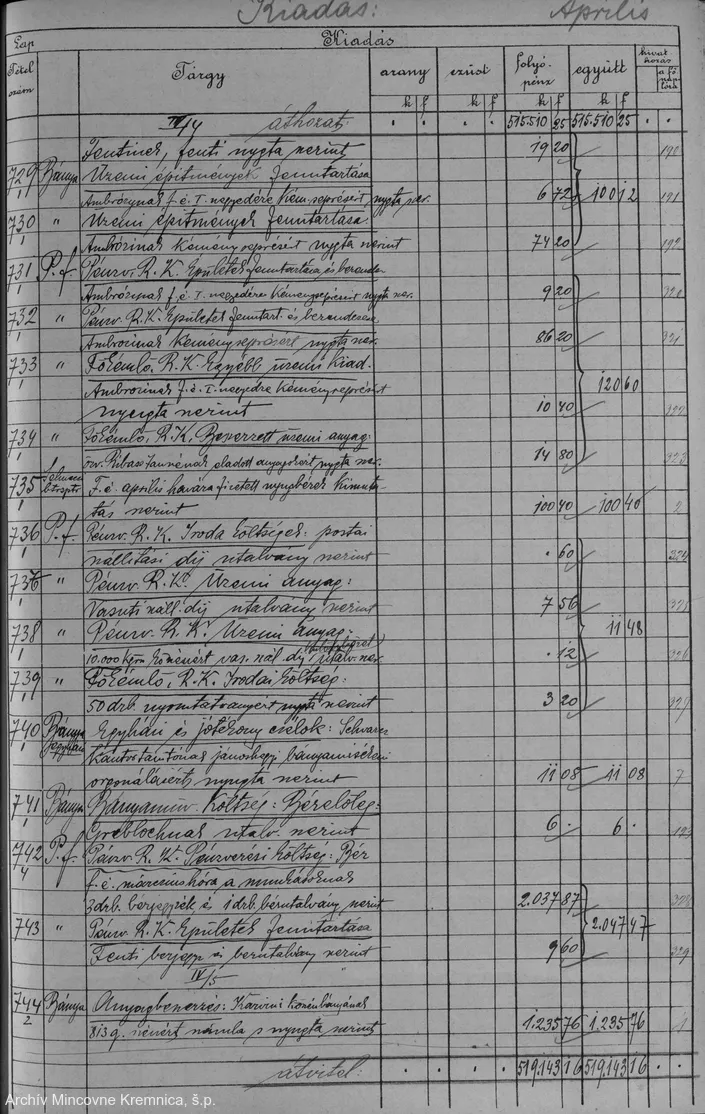 Kiadás: Április
Lap Kiadás
Tétel szám Tárgy arany ezüst folyó-pénz együtt hivatkozás a főnaplóra
k f k f k f k f
IV/4 áthozat: 515.510 25 515.510 25
Fentinek, fenti nyugta szerint 19 20
729 Bánya Üzemi épitmények fenntartása
Ambrózinak f. é. I. negyedére kém. seprésért, nyugta szer. 6 72 100 12 191
730 " Üzemi épitmények fenntartása
Ambrózinak kéményseprésért nyugta szerint 74 20 192
731 P.f. Pénzv. R. K. Épületek fenntartása és berendez.
Ambrózinak f. é. I. negyedére kéményseprésért nyugta szer. 9 20 320
732 " Pénzv. R. K. Épületek fenntart. és berendezése
Ambrózinak kéményseprésért nyugta szer. 86 20 321
733 " Főkémlő. R. K. Egyébb üzemi kiad.
Ambrózinak f. é. I. negyedre kéményseprésért 120 60
nyugta szerint 10 40 322
734 " Főkémlő. R. K. Beszerzett üzemi anyag:
özv. Ribasi Jánosnénak eladott anyagokért nyugta szer. 14 80 323
735 F. é. április havára fizetett nyugbérek kimuta-
tás szerint 100 40 100 40 2
736 P.f. Pénzv. R. K. Iroda költségek: postai
szállitási dij utalvány szerint . 60 324
737 " Pénzv. R. K. Üzemi anyag:
Vasuti száll. dij utalvány szerint 7 56 325
738 " Pénzv. R. K. Üzemi anyag: 11 48
10.000 kgrm kőszénért vas. szál. dij utalv. szer. . 12 326
739 " Főkémlő. R. K. Irodai költség:
50 drb. nyomtatványért nyugta szerint 3 20 327
740 Bánya Egyházi és jótékony czélok: Schwarz
Kántortanitónak jánoshegyi bányamisékeni
orgonálásért nyugta szerint 11 08 11 08 7
741 Bánya Bányamüv. Költség: Bérelőleg:
Greblochnak utalv. szerint 6 . 6 . 193
742 P.f. Pénzv. R. K. Pénzverési költség: Bér
f. é. márczius hóra a munkásoknak
3 drb. bérjegyzék és 1 drb. bérutalvány szerint 2.037 87 328
743 " Pénzv. R. K. Épületek fenntartása 2.047 47
Fenti bérjegyz. és bérutalvány szerint 9 60 329
IV/5
744 Bánya Anyagbeszerzés: Karvini kőszénbányának
813 q. szénért számla s nyugta szerint 1.235 76 1.235 76 1
átvitel: 519.143 16 519.143 16
Archív Mincovne Kremnica, š.p.